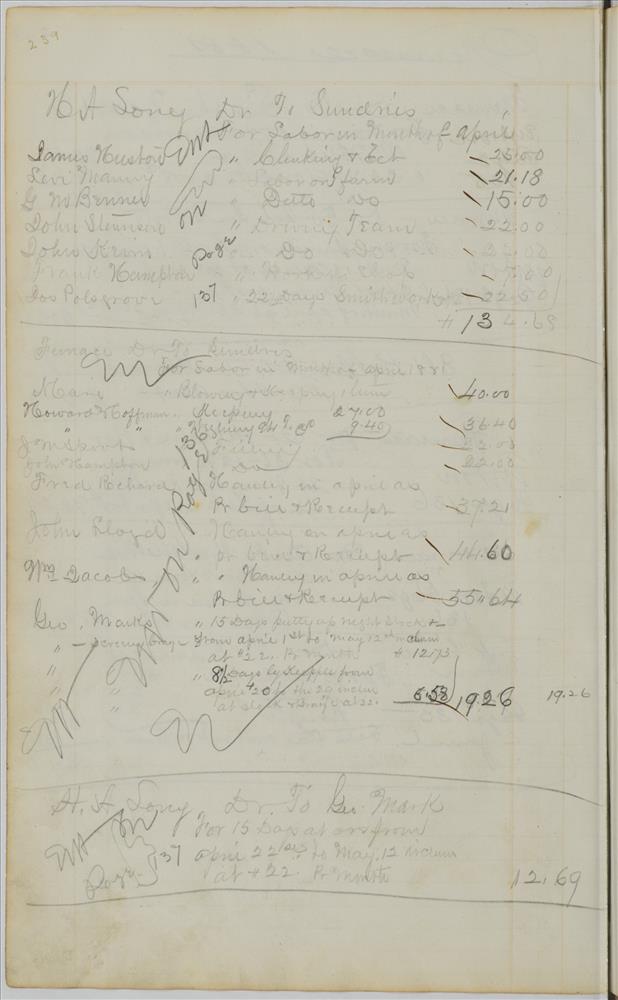 239
H A Long Dr. To Sundries
For Labor in Month of April
James Huston " Clerking & Ect 25.00
Levi " Labor on farm 21.18
G W Benner " Ditto Do 15.00
John " Driving Team 22.00
John Keim " Do Do 22.00
Frank Hampton " 7.00
Jos Polsgrove " 22 Days Smithwork 22.50
Ent on Page 137
# 134.68
Furnace Dr. To Sundries
For Labor in Month of April 1881
" Blowing & Keeping 40.00
Howard Hoffman " Keeping 27.00
" " " Weighing 94 T. 9.40 36.40
Filling 22.00
John Hampton Do 22.00
Fred Richard Hauling in april as
Pr bill & Receipt 37.21
John Lloyd Hauling in april as
" pr bill & Receipt 44.60
Wm Jacobs " " Hauling in april as
Pr bill & Receipt 55.64
Geo. Marks " 15 Days putting up night stock
" from april 1st to May 12th inclum
" at $22. Pr Month # 12.73
" " 8 1/2 Days by from
" " april 20 to the 29 inclum
" at stock at 22. 6.53 19.26 19.26
Ent on Page 136
H. A. Long, Dr. To Geo. Mark
For 15 Days at ore from
april 22 to May 12 inclum
at $22 Pr Month 12.69
Ent on
Page 137